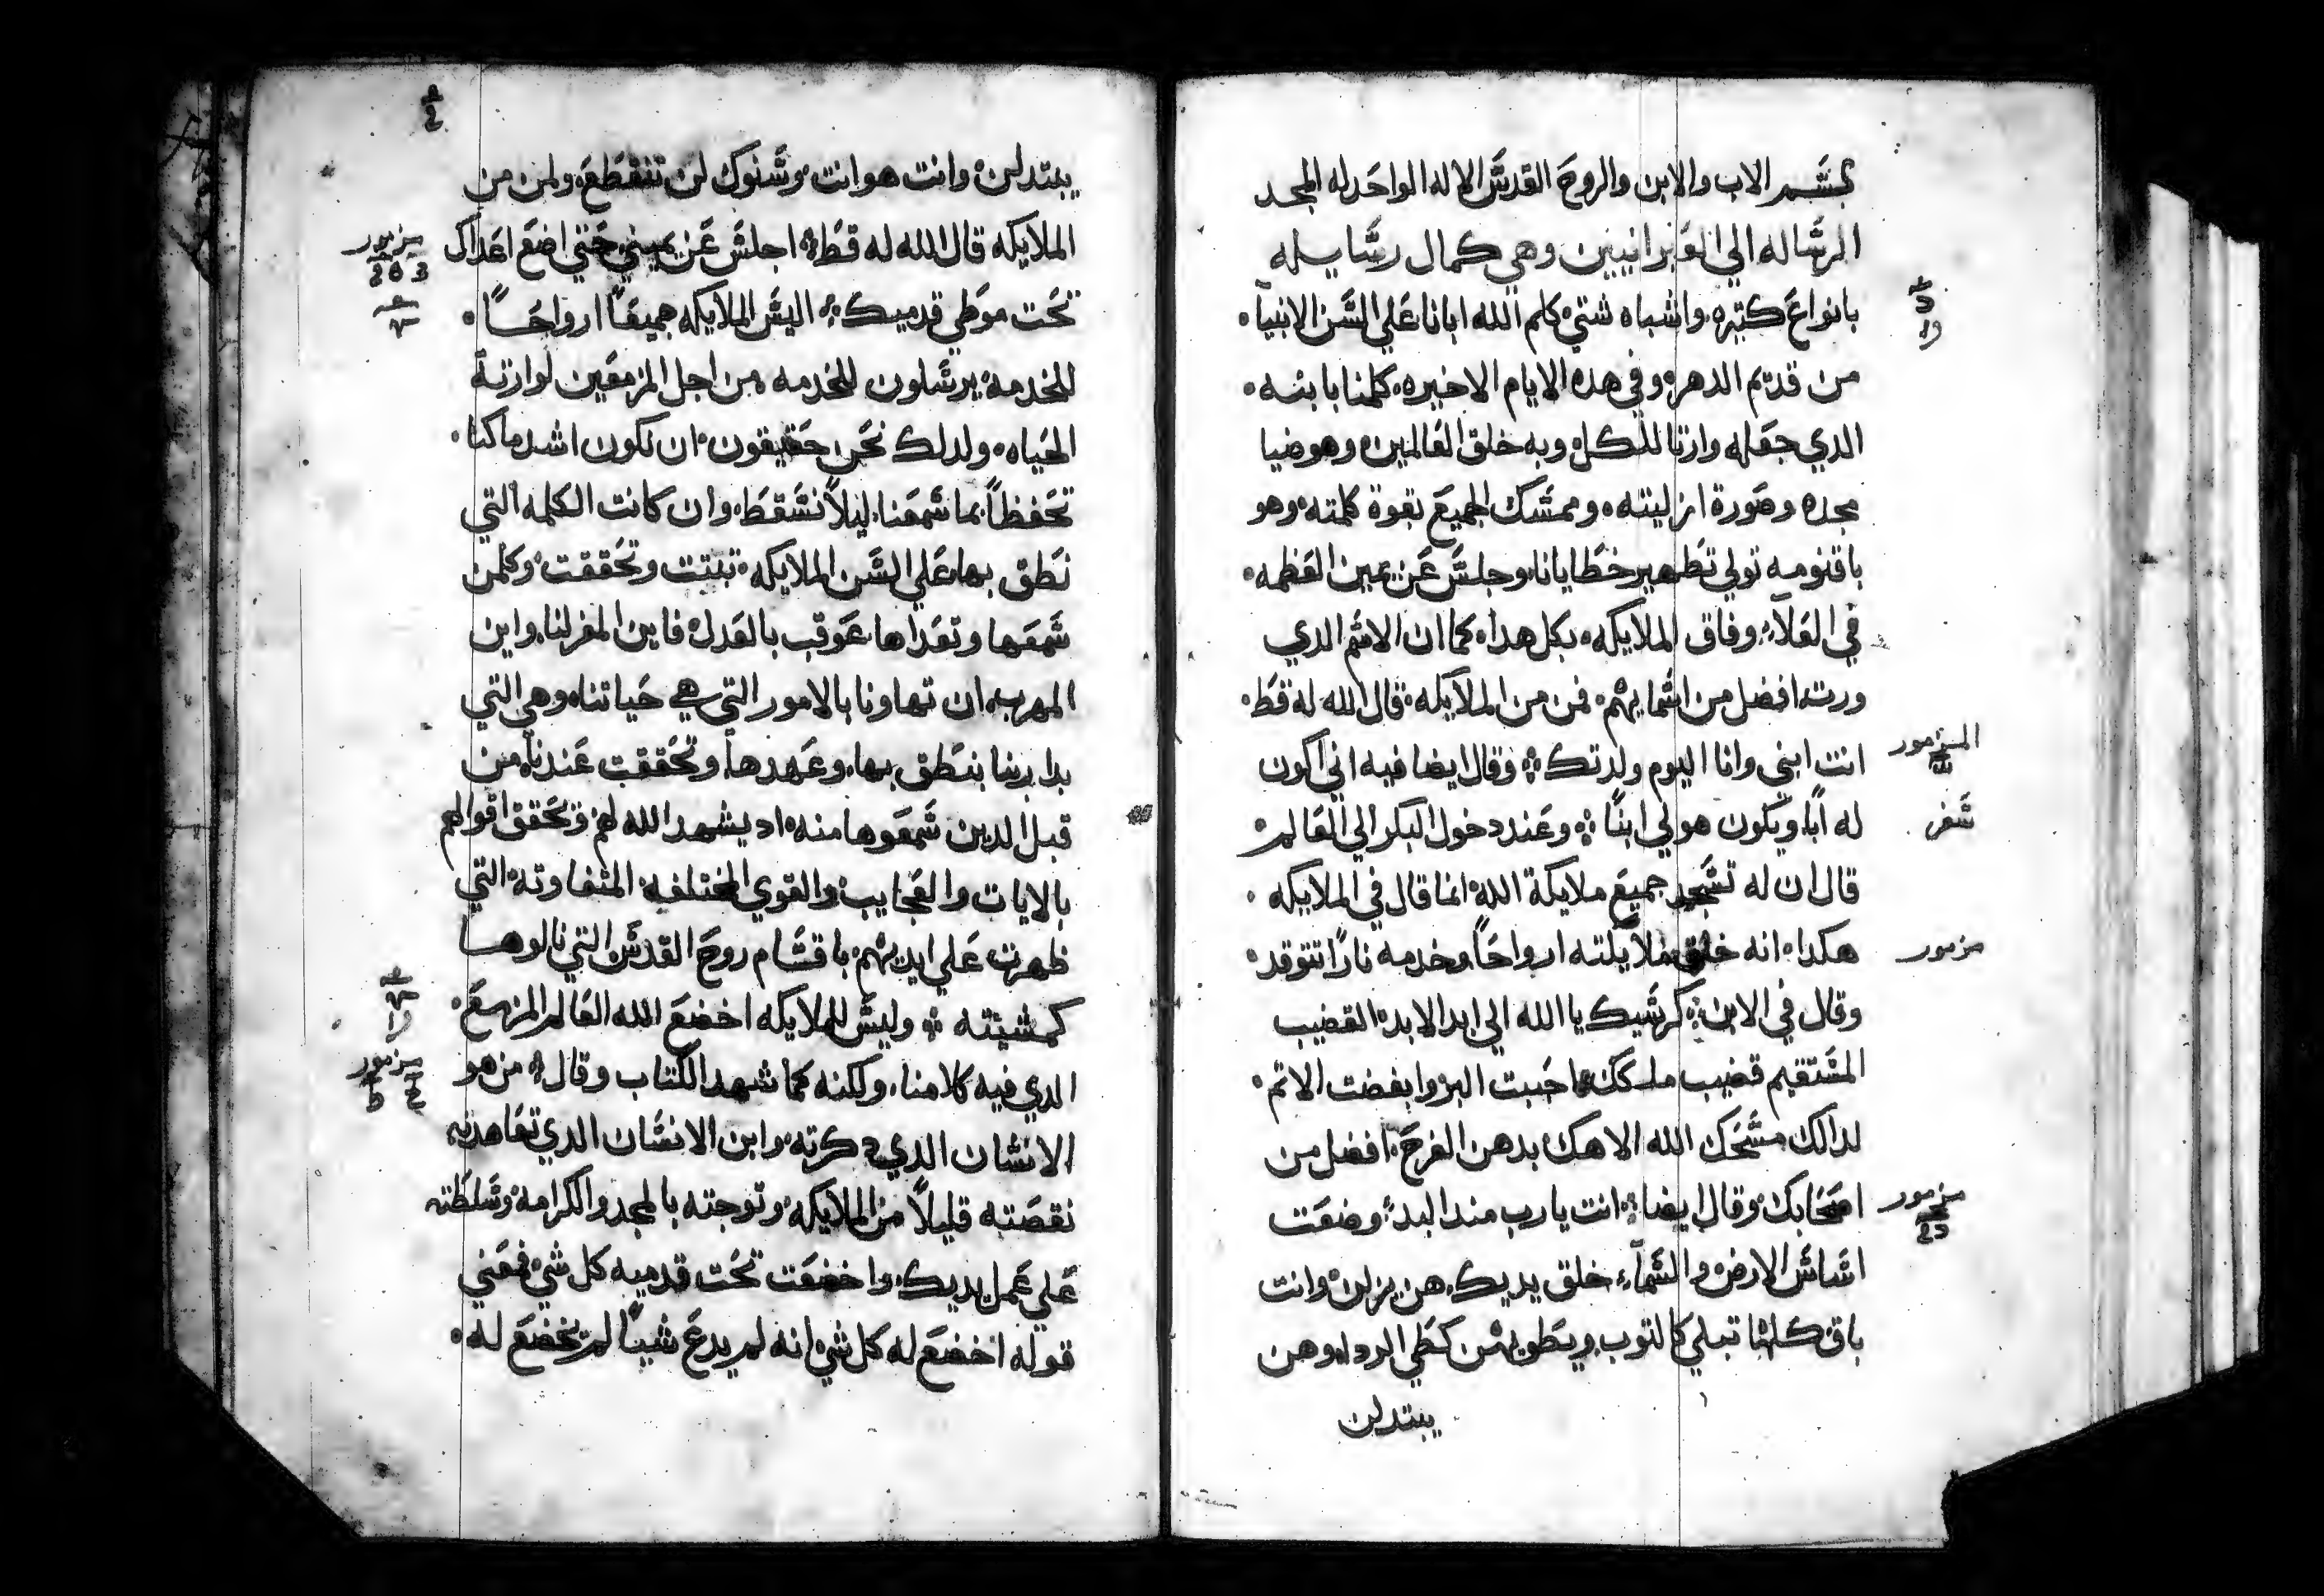 بسم الاب والابن والروح القدس الاله الواحد له المجد
الرساله الي العبرانيين وهي كمال رسايله
بانواع كتيره واشباه شتي كلم الله ابانا علي السن الانبيآ
من قديم الدهر وفي هده الايام الاخيره كلمنا بابنه
الدي جعله وارتا للكل وبه خلق العالمين وهو ضيا
مجده وصورة ازليته وممسك الجميع بقوة كلمته وهو
باقنومه تولي تطهير خطايانا وجلس عن يمين العظمه
في العلاء وفاق الملايكه بكل هدا كما ان الاسم الدي
ورته افضل من اسمايهم فمن من الملايكه قال الله له قط
المزمور
انت ابني وانا اليوم ولدتك وقال ايضا فيه اني اكون
سفر
له اباً ويكون هو لي ابنًا وعند دخول البكر الي العالم
قال ان له تسجد جميع ملايكة الله انما قال في الملايكه
مزمور
هكدا انه خلق ملايكته ارواحًا وخدمه نارًا تتوقد
وقال في الابن كرسيك يا الله الي ابد الابد القضيب
المستقيم قضيب ملكك احببت البر وابغضت الاتم
لدالك مسحك الله الاهك بدهن الفرح افضل من
مزمور
اصحابك وقال ايضا انت يارب مند البدء وضعت
اساس الارض والسمآء خلق يديك هن يزلن وانت
باق كلها تبلي كالتوب ويطويهن كطي الردا وهن
يبتدلن
يبتدلن وانت هو انت وسنوك لن تنقطع ولمن من
مزمور
الملايكه قال الله له قط اجلس عن يميني حتي اضع اعداك
تحت موطي قدميك اليس الملايكه جميعًا ارواحًا
للخدمه يرسلون للخدمه من اجل المزمعين لوارتة
الحياه ولدلك نحن حقيقون ان نكون اشد ما كنا
تحفظاً بما سمعنا ليلاً نسقط وان كانت الكلمه التي
نطق بها علي السن الملايكه تبتت وتحققت وكلمن
سمعها وتعداها عوقب بالعدل فاين المفر لنا واين
المهرب ان تهاونا بالامور التي هي حياتنا وهي التي
بدا ربنا بنطق بها وعهدها وتحققت عندنا من
قبل الدين سمعوها منه اد يشهد الله لهم وتحقق اقوالهم
بالايات والعجايب والقوي المختلفه المتفاوته التي
ظهرت علي ايديهم باقسام روح القدس التي نالوها
كمشيته وليس للملايكه اخضع الله العالم المزمع
مزمور
الدي فيه كلامنا ولكنه كما شهد الكتاب وقال من هو
الانسان الدي دكرته وابن الانسان الدي تعاهدته
نقصته قليلاً من الملايكه وتوجته بالمجد والكرامه وسلطته
علي عمل يديك واخضعت تحت قدميه كل شي فمعني
قوله اخضع له كل شي انه لم يدع شيًا لم يخضع له